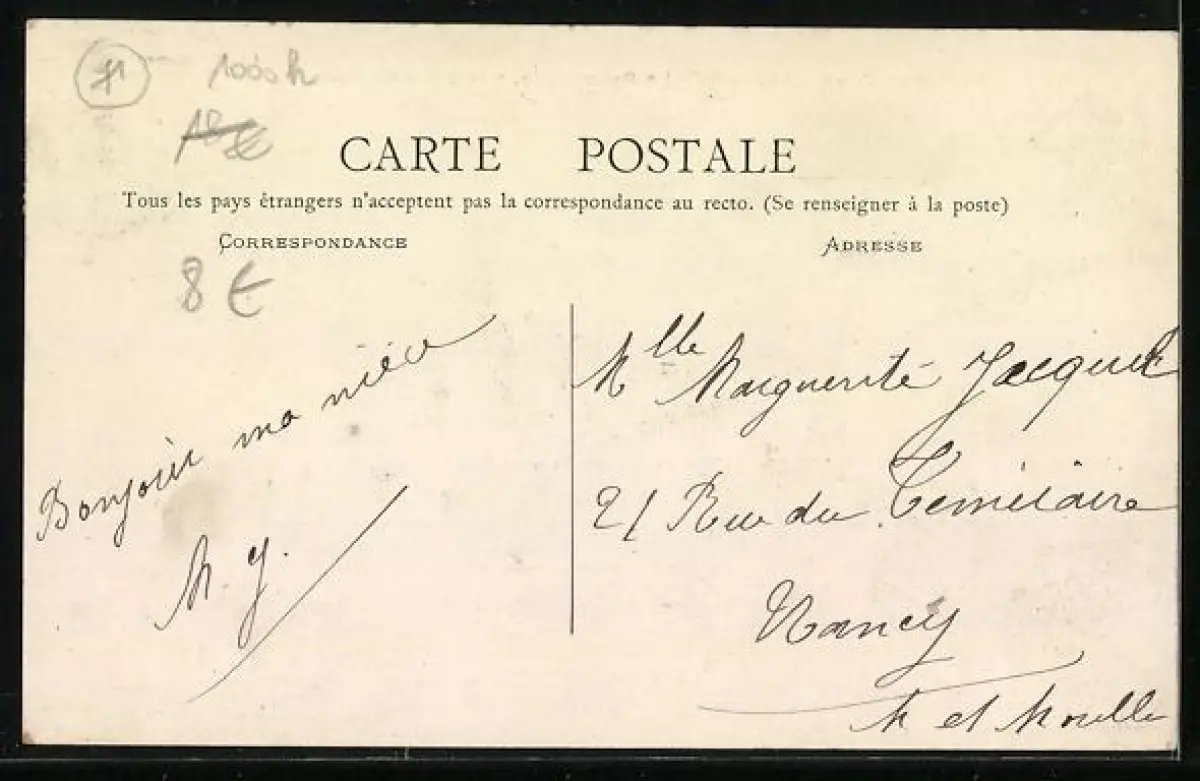 1000 h
CARTE POSTALE
Tous les pays étrangers n'acceptent pas la correspondance au recto. (Se renseigner à la poste)
CORRESPONDANCE
ADRESSE
8 €
Bonjour ma nièce
M. J.
Mlle Marguerite Jacquel
21 Rue du Téméraire
Nancy
M et Moselle